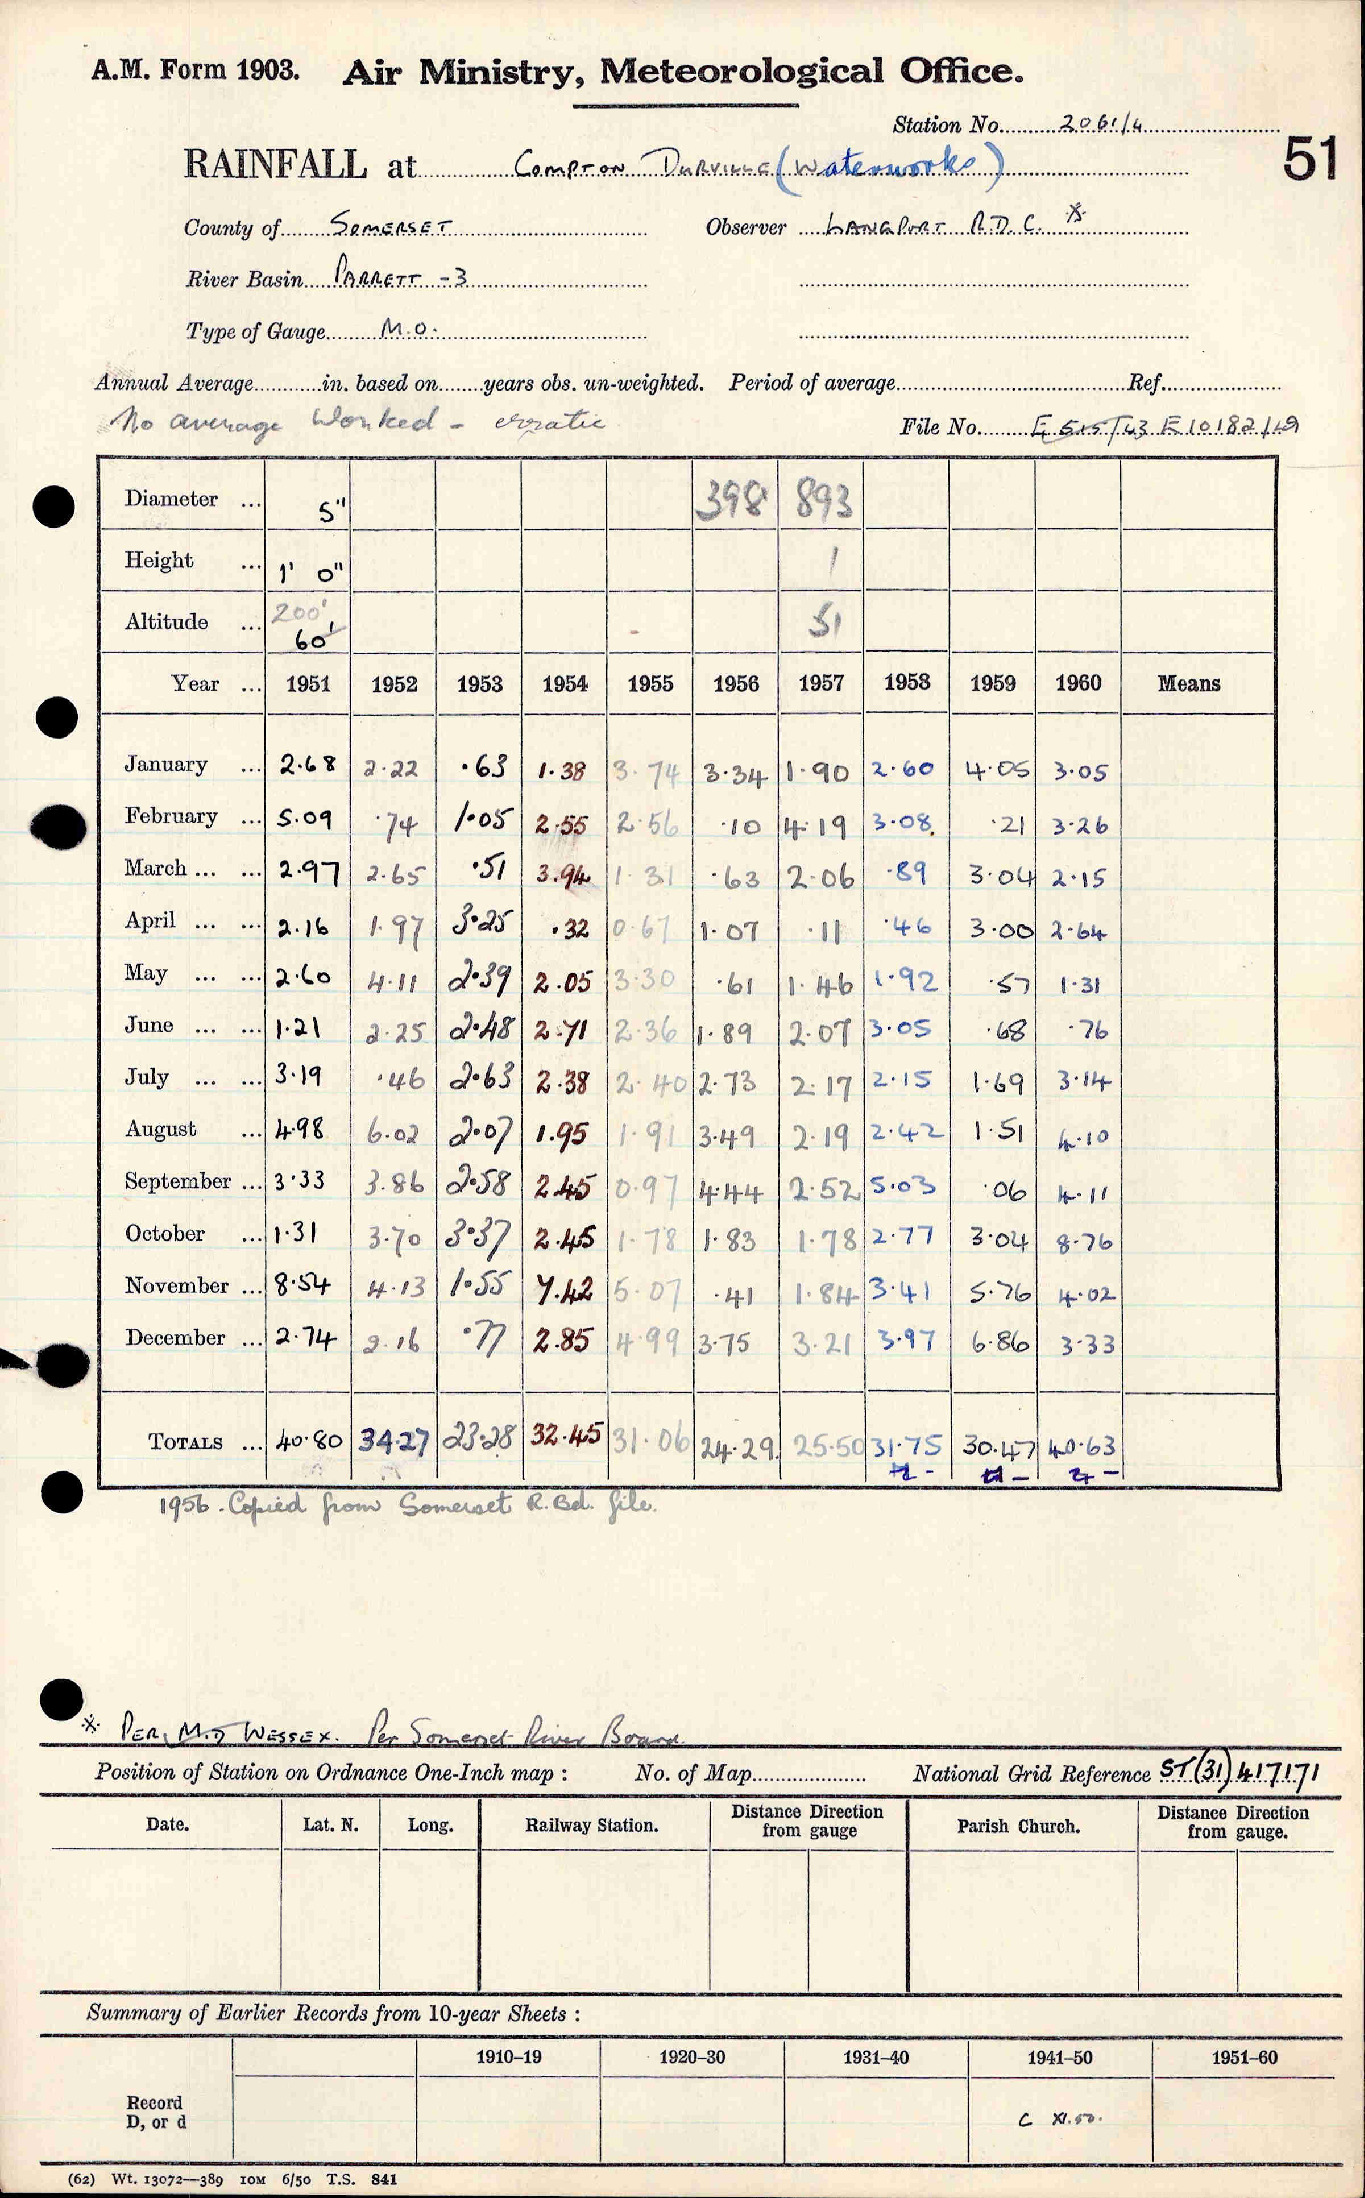 A.M. Form 1903. Air Ministry, Meteorological Office.
Station No. 2061/4
51
RAINFALL at COMPTON DURVILLE (Waterworks)
County of SOMERSET Observer LANGPORT R.D.C. *
River Basin PARRETT -3
Type of Gauge M.O.
Annual Average in. based on years obs. un-weighted. Period of average Ref.
No average worked - erratic File No. E10182/49
Diameter ... 5" 398 893
Height ... 1' 0" 1
Altitude ... 200' 60' 51
Year ... 1951 1952 1953 1954 1955 1956 1957 1958 1959 1960 Means
January ... 2.68 2.22 .63 1.38 3.74 3.34 1.90 2.60 4.05 3.05
February ... 5.09 .74 1.05 2.55 2.56 .10 4.19 3.08 .21 3.26
March ... ... 2.97 2.65 .51 3.94 1.31 .63 2.06 .89 3.04 2.15
April ... ... 2.16 1.97 3.25 .32 0.67 1.07 .11 .46 3.00 2.64
May ... ... 2.60 4.11 2.39 2.05 3.30 .61 1.46 1.92 .57 1.31
June ... ... 1.21 2.25 2.48 2.71 2.36 1.89 2.07 3.05 .68 .76
July ... ... 3.19 .46 2.63 2.38 2.40 2.73 2.17 2.15 1.69 3.14
August ... 4.98 6.02 2.07 1.95 1.91 3.49 2.19 2.42 1.51 4.10
September ... 3.33 3.86 2.58 2.45 0.97 4.44 2.52 5.03 .06 4.11
October ... 1.31 3.70 3.37 2.45 1.78 1.83 1.78 2.77 3.04 8.76
November ... 8.54 4.13 1.55 7.42 5.07 .41 1.84 3.41 5.76 4.02
December ... 2.74 2.16 .77 2.85 4.99 3.75 3.21 3.97 6.86 3.33
TOTALS ... 40.80 34.27 23.28 32.45 31.06 24.29 25.50 31.75 30.47 40.63
1956 - Copied from Somerset R. Bd. file.
* PER, M.O WESSEX. Per Somerset River Board.
Position of Station on Ordnance One-Inch map : No. of Map National Grid Reference ST(31) 417171
Date. Lat. N. Long. Railway Station. Distance Direction from gauge Parish Church. Distance Direction from gauge.
Summary of Earlier Records from 10-year Sheets :
1910-19 1920-30 1931-40 1941-50 1951-60
Record
D, or d C XI.50.
(62) Wt. 13072—389 10M 6/50 T.S. 841